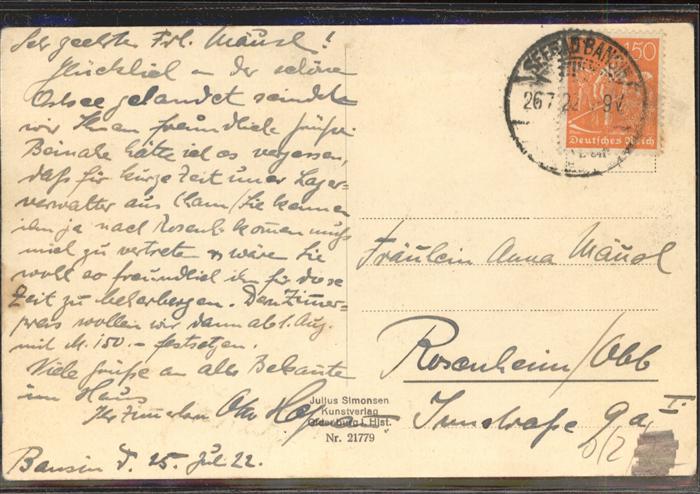 Sehr geehrtes Frl. Mäusl!
Glücklich an der schönen
Ostsee gelandet senden
wir Ihnen freundliche Grüße.
Beinahe hätte ich es vergessen,
daß für kurze Zeit unser Lager-
verwalter aus Cham, Sie kennen
ihn ja nach Rosenh. kommen muß
mich zu vertreten wäre Sie
wohl so freundlich ihn für diese
Zeit zu beherbergen. Den Zimmer-
preis wollen wir dann ab 1. Aug.
mit M. 150.- festsetzen.
Viele Grüße an alle Bekannte
im Haus
Ihr Zimmerherr Otto
Bansin d. 25. Jul 22.
Julius Simonsen
Kunstverlag
Oldenburg i. Hlst.
Nr. 21779
SEEBAD BANSIN
26.7.22 9V
150
Deutsches Reich
Fräulein Anna Mäusl
Rosenheim/Obb
Innstraße 9a
I.
b/2